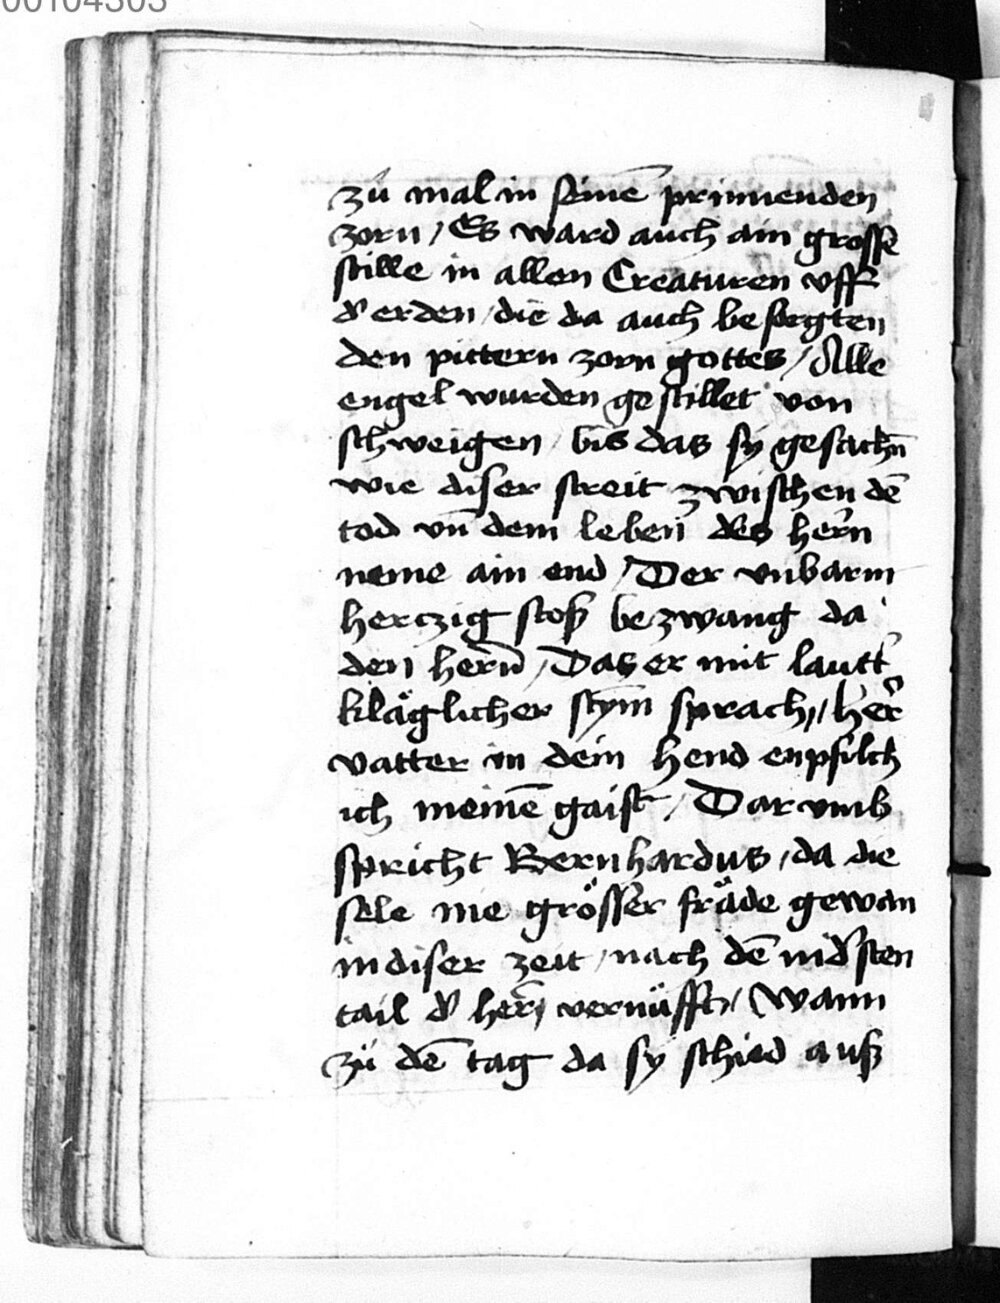 00104303
zů mal in seinē prinnenden
zorn / Es ward auch ain grosse
stille in allen Creaturen vff
d' erden / die da auch besorgten
den pittern zorn gottes / Alle
engel wurden gestillet von
schweigen / bis das sy gesachn̄
wie diser streit zwischen dē
tod vn̄ dem leben des hern̄
neme ain end / Der vnbarm
herczig stoß bezwang da
den hern̄ / Das er mit lautt'
kläglicher stym̄ sprach // her'
vatter in dein hend enpfilch
ich meinē gaist / Dar vmb
spricht Bernhardus / da die
sele nie grösser fräde gewan
in diser zeit / nach dē nid'sten
tail d' her̄n vernüfft / Wann
zů dē tag da sy schied auß